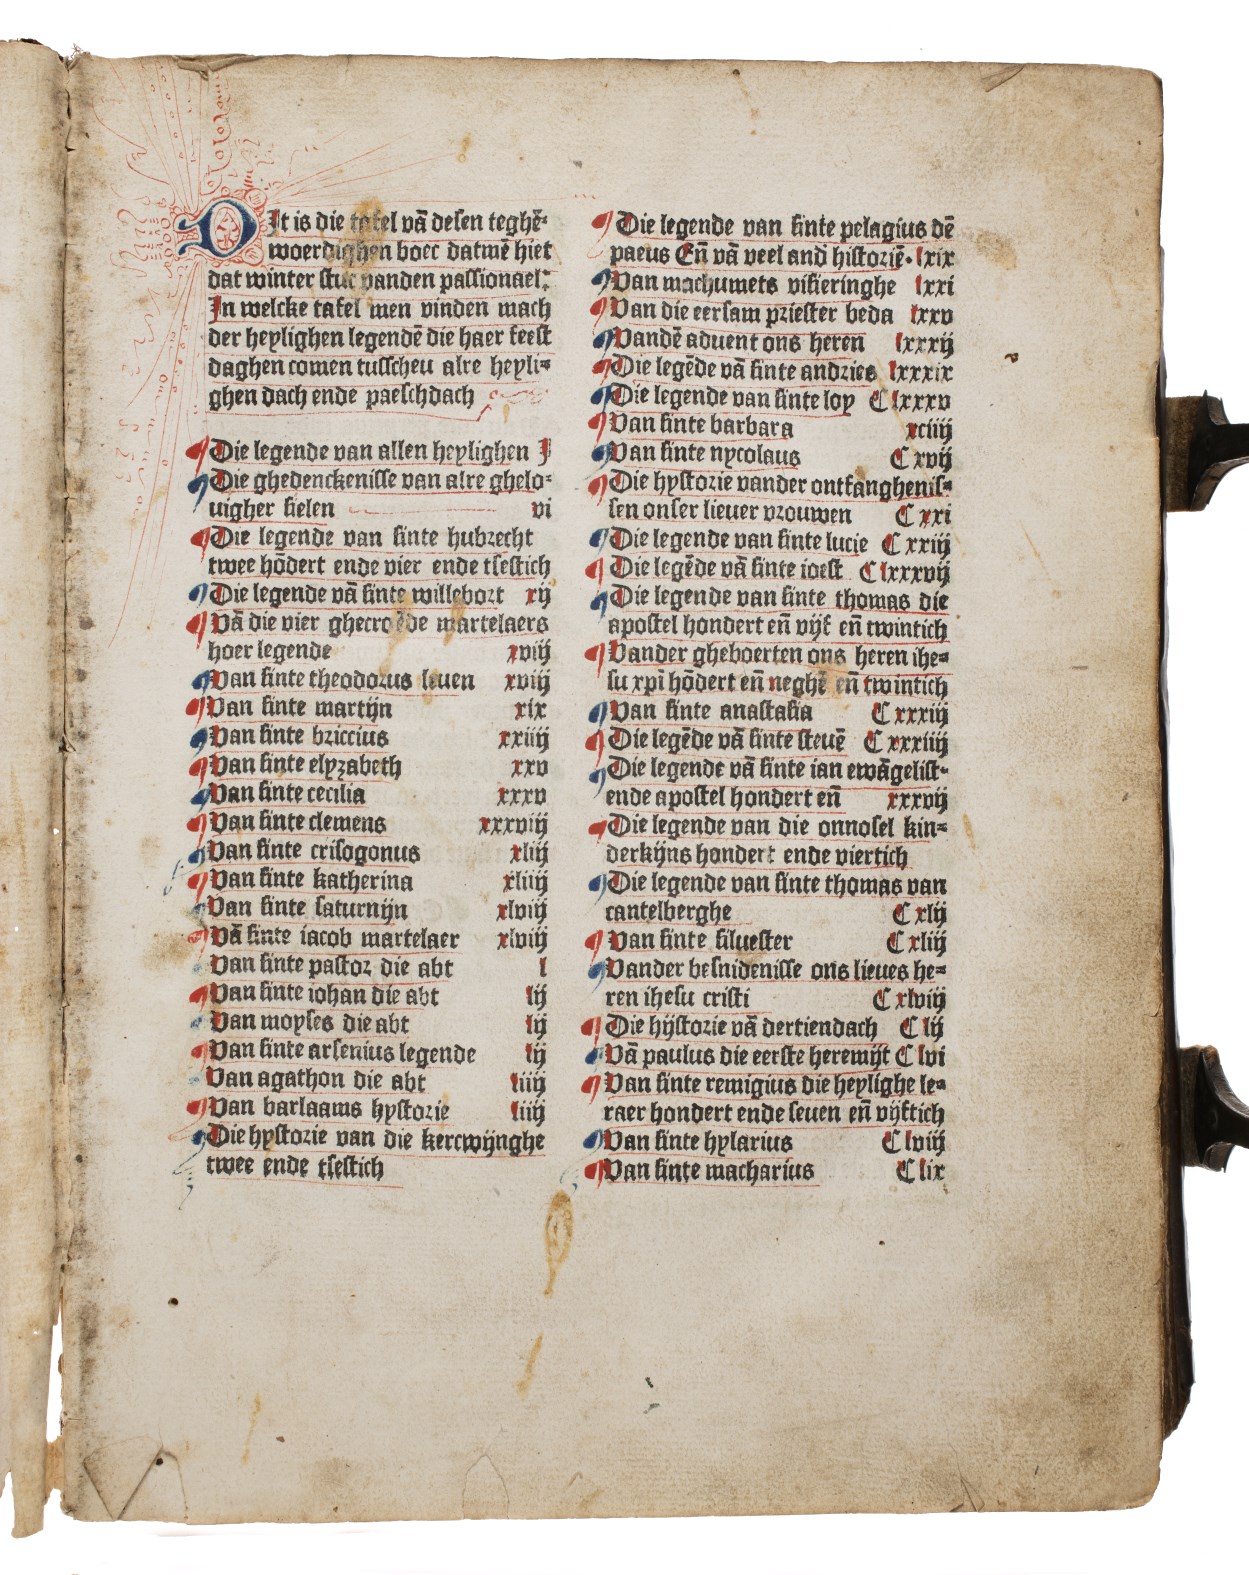 Dit is die tafel vā desen teghē-
woerdighen boec datmē hiet
dat winter stuc vanden passionael:
In welcke tafel men vinden mach
der heylighen legendē die haer feest
daghen comen tusscheu alre heyli-
ghen dach ende paeschdach
Die legende van allen heylighen I
Die ghedenckenisse van alre ghelo-
uigher sielen vi
Die legende van sinte hubrecht
twee hōdert ende vier ende tsestich
Die legende vā sinte willebort xij
Vā die vier ghecroēde martelaers
hoer legende xviij
Van sinte theodorus leuen xviij
Van sinte martijn xix
Van sinte briccius xxiiij
Van sinte elyzabeth xxv
Van sinte cecilia xxxv
Van sinte clemens xxxviij
Van sinte crisogonus xliij
Van sinte katherina xliiij
Van sinte saturnijn xlviij
Vā sinte iacob martelaer xlviij
Van sinte pastor die abt l
Van sinte iohan die abt lij
Van moyses die abt lij
Van sinte arsenius legende lij
Van agathon die abt liiij
Van barlaams hystorie liiij
Die hystorie van die kercwijnghe
twee ende tsestich
Die legende van sinte pelagius dē
paeus Eñ vā veel and historiē. lxix
Van machumets visieringhe lxxi
Van die eersam priester beda lxxv
Vandē aduent ons heren lxxxij
Die legēde vā sinte andries lxxxix
Die legende van sinte loy C lxxxv
Van sinte barbara xciiij
Van sinte nycolaus C xvij
Die hystorie vander ontfanghenis-
sen onser lieuer vrouwen C xxi
Die legende van sinte lucie C xxiij
Die legēde vā sinte ioest C lxxxvij
Die legende van sinte thomas die
apostel hondert eñ vijf eñ twintich
Vander gheboerten ons heren ihe-
su xpi hōdert eñ neghē eñ twintich
Van sinte anastasia C xxxiij
Die legēde vā sinte steuē C xxxiiij
Die legende vā sinte ian ewāgelist-
ende apostel hondert eñ xxxvij
Die legende van die onnosel kin-
derkijns hondert ende viertich
Die legende van sinte thomas van
cantelberghe C xlij
Van sinte siluester C xliij
Vander besnidenisse ons lieues he-
ren ihesu cristi C xlviij
Die hijstorie vā dertiendach C lij
Vā paulus die eerste heremijt C lvi
Van sinte remigius die heylighe le-
raer hondert ende seuen eñ vijftich
Van sinte hylarius C lviij
Van sinte macharius C lix